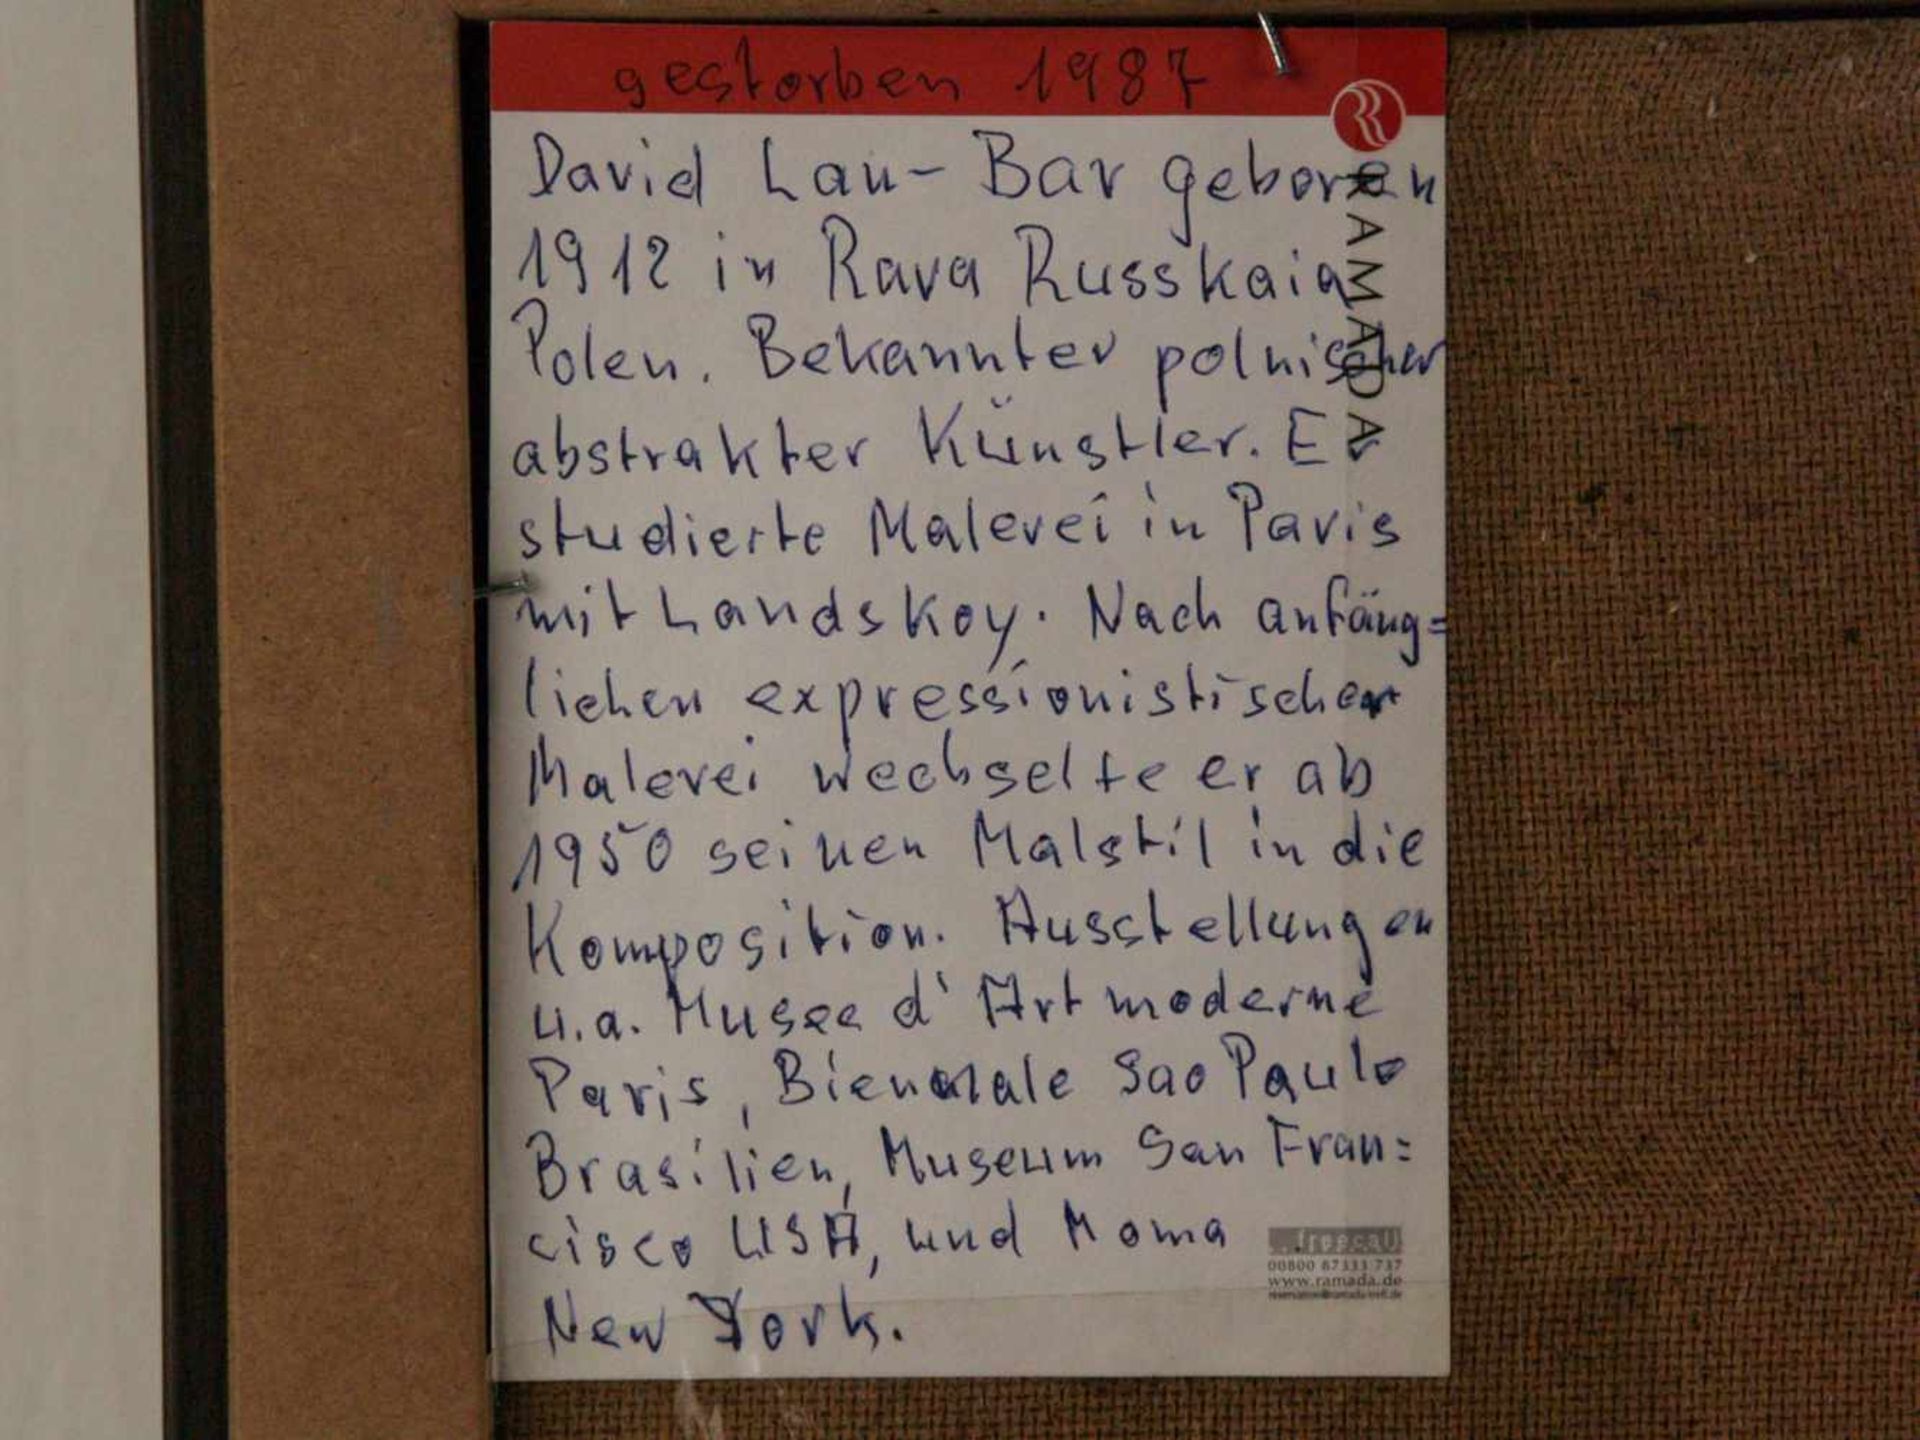 gestorben 1987
David Lau-Bar geboren
1912 in Rava Russkaia
Polen. Bekannter polnischer
abstrakter Künstler. Er
studierte Malerei in Paris
mit Landskoy. Nach anfäng=
lichen expressionistischen
Malerei wechselte er ab
1950 seinen Malstil in die
Komposition. Ausstellungen
u.a. Musee d'Art moderne
Paris, Biennale Sao Paulo
Brasilien, Museum San Fran=
cisco USA, und Moma
New York.
RAMADA
...freecall
00800 87333 737
www.ramada.de